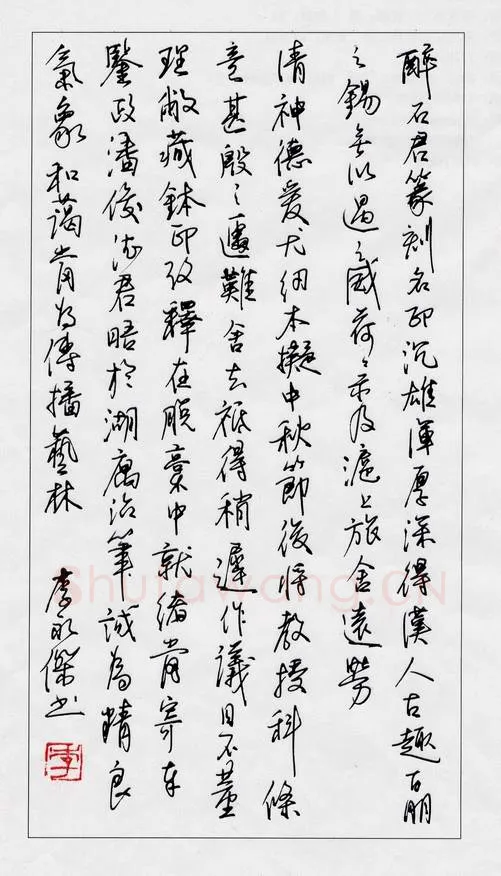 醉石君篆刻名印沉雄渾厚深得漢人古趣百朋
之錫無以過之感荷之示及滬上旅舍遠勞
清神德愛尤細本擬中秋節後將教授科條
意甚殷之遽難舍去祗得稍遲作議日不董
理敝藏鉢印攷釋在脫稾中就緒當寄奉
鑒政潘俊君晤於湖寓治筆誠為精良
氣象和藹當為傳播藝林 李永傑书
李
Shufawang.CN